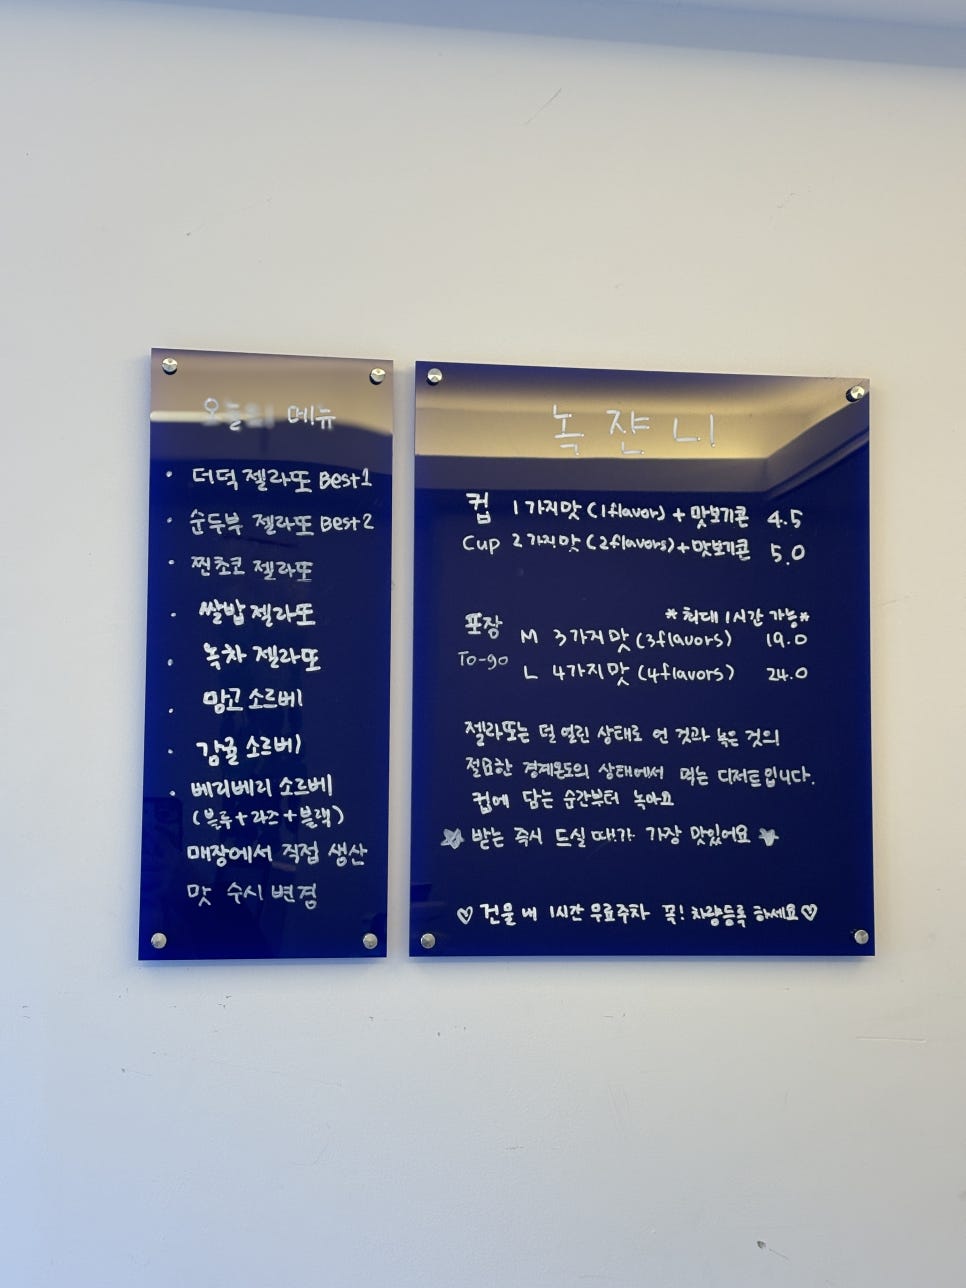 오늘의 메뉴
· 더덕 젤라또 Best1
· 순두부 젤라또 Best2
· 찐초코 젤라또
· 쌀밥 젤라또
· 녹차 젤라또
· 망고 소르베
· 감귤 소르베
· 베리베리 소르베
(블루+라즈+블랙)
매장에서 직접 생산
맛 수시 변경
녹쟌니
컵 1가지맛 (1flavor) + 맛보기콘 4.5
Cup 2가지맛 (2flavors) + 맛보기콘 5.0
*최대 1시간 가능*
포장 M 3가지맛 (3flavors) 19.0
To-go L 4가지맛 (4flavors) 24.0
젤라또는 덜 얼린 상태로 언 것과 녹은 것의
절묘한 경계온도의 상태에서 먹는 디저트입니다.
컵에 담는 순간부터 녹아요
★ 받는 즉시 드실 때가 가장 맛있어요 ★
♡ 건물 내 1시간 무료주차 꼭! 차량등록 하세요 ♡